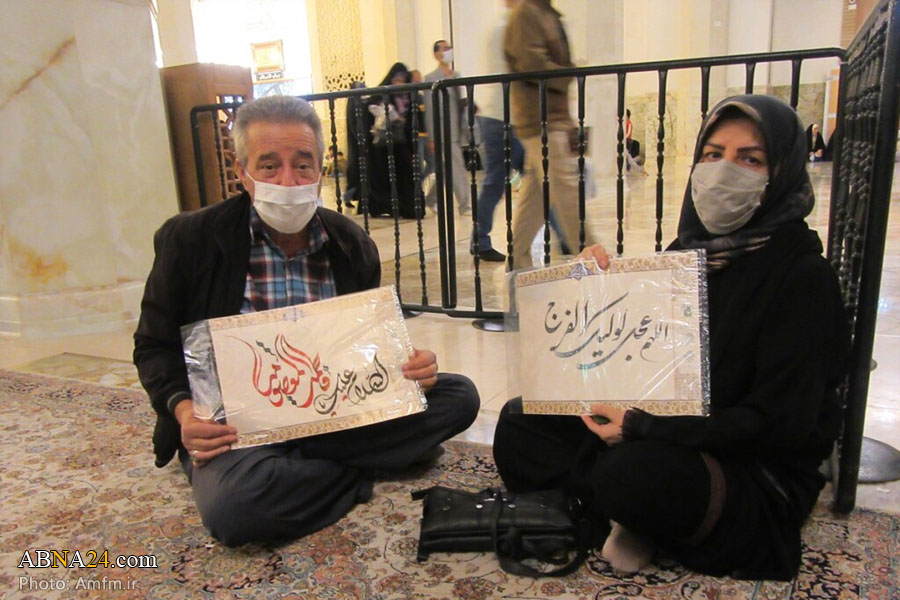 السلام علیک
فاطمة المعصومة
اللهم عجل لولیک الفرج
ABNA24.com
Photo: Amfm.ir